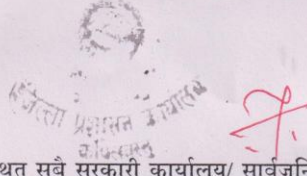 जिल्ला प्रशासन कार्यालय
कपिलवस्तु
थत सबै सरकारी कार्यालय/ सार्वजनि